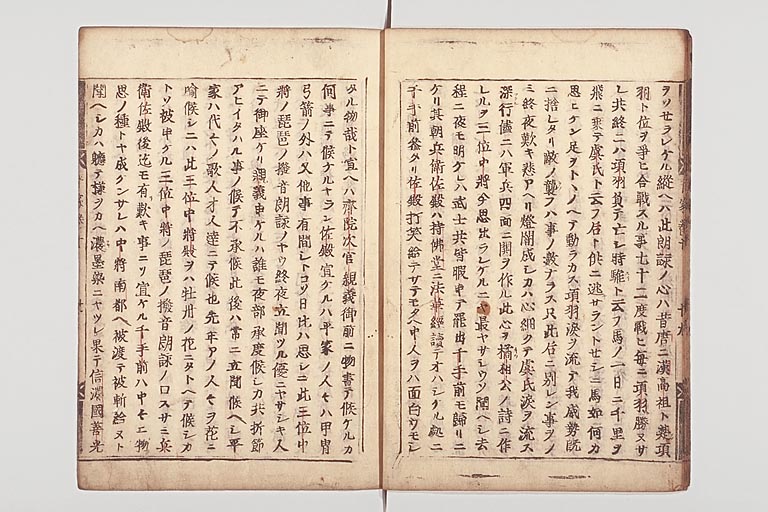 ヲソサラレケル縦ヘハ此朗詠ノ心ハ昔唐ニ漢高祖ト楚項
羽ト位ヲ爭ヒ合戰スル事七十二度戰ヒ毎ニ項羽勝ヌサ
レ共終ニハ項羽負テ亡シ時騅ト云フ馬ノ一日ニ千里ヲ
飛ニ乗テ虞氏ト云フ后ト倶ニ逃サラントセシニ馬如何カ
思ヒケン足ヲトヽノヘテ動ラカス項羽涙ヲ流テ我威勢既
ニ捨レタリ敵ノ襲フハ事ノ數ナラス只此后ニ別レン事ヲノ
ミ終夜歎キ悲アヘリ燈闇成シカハ心細クテ虞氏涙ヲ流ス
深行儘ニハ軍兵四面ニ閧ヲ作ル此心ヲ橘相公ノ詩ニ作
レルヲ三位中將今思出ラレケルニヤ最ヤサシウソ聞ヘシ去
程ニ夜モ明ケレハ武士共皆暇申テ罷出千手前モ歸リニ
ケリ其朝兵衛佐殿ハ持佛堂ニ法華經讀テオハシケル処ニ
千手前參タリ佐殿打笑給テサテモ夕ヘ中人ヲハ面白ウモシ
タル物哉ト宣ヘハ齊院次官親義御前ニ物書テ候ケルカ
何事ニテ候ケルヤラン佐殿宣ケルハ平家ノ人々ハ甲冑
弓箭ノ外ハ又他事有間シトコソ日比ハ思シニ此三位中
將ノ琵琶ノ撥音朗詠ノヤウ終夜立聞ツルニ優ニヤサシキ人
ニテ御座ケリ親義申ケルハ誰モ夜部承度候シカ共折節
アヒイタハル事ノ候テ不承候此後ハ常ニ立聞候ヘシ平
家ハ代々ノ歌人才人達ニテ候也先年アノ人々ヲ花ニ
喩候シニハ此三位中將殿ヲハ牡丹ノ花ニタトヘテ候シカ
トソ被申ケル三位中將ノ琵琶ノ撥音朗詠ノ口スサミ兵
衛佐殿後迄モ有歎キ事ニソ宣ケル千手前ハ中々ニ物
思ノ種トヤ成ケンサレハ中將南都ヘ被渡テ被斬給ヌト
聞ヘシカハ軈テ樣ヲカヘ濃墨染ニヤツレ果テ信濃國善光